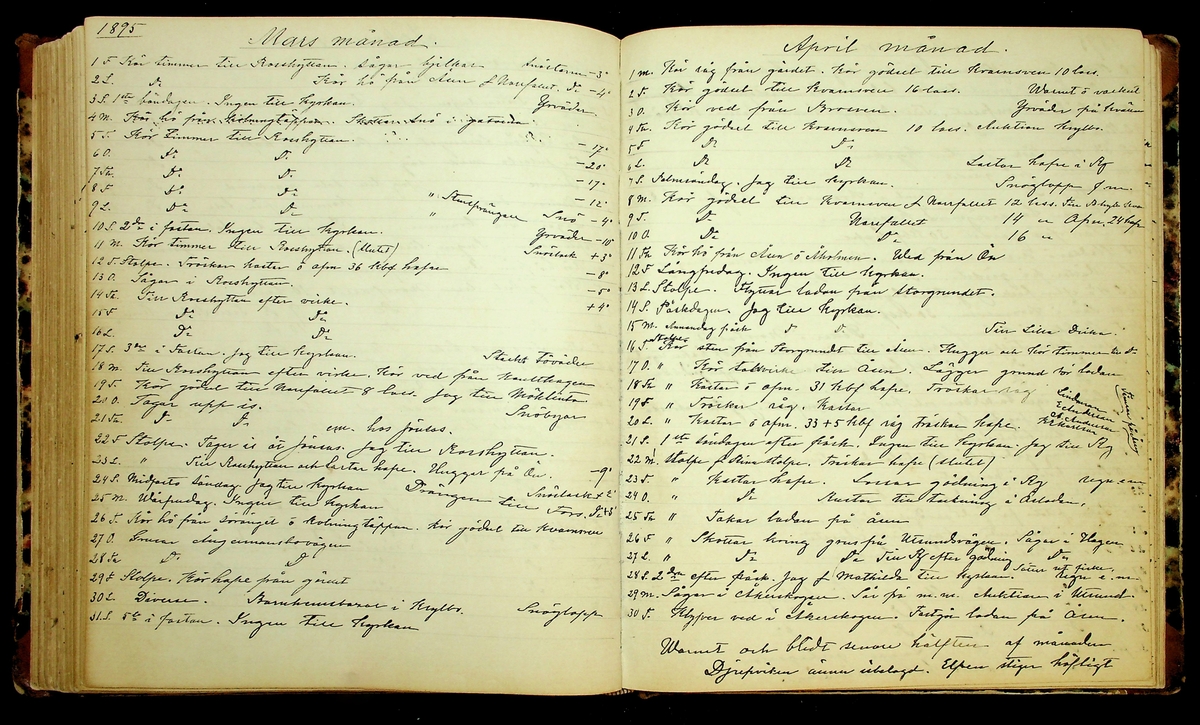 1895
Mars månad.
1 F Kör timmer till Rosshyttan. Sågar bjelkar Snöstorm -3°
2 L. D:o Kör hö från Åsen & Narfallet. D:o -4°
3 S. 1sta Söndagen. Ingen till Kyrkan. Yrväder
4 M. Kör hö från Kolningtäppan. Skottar snö i gatorna.
5 T. Kör timmer till Rosshyttan. D:o -17°
6 O. D:o D:o -20°
7 Th. D:o D:o -17°
8 F D:o D:o -12°
9 L. D:o D:o " Snö -4°
10 S. 2dra i fastan. Ingen till Kyrkan. Yrväder -10°
11 M. Kör timmer till Rosshyttan. (Slutet) Snöslask +3°
12 T. Stolpe. Tröskar kastar ö afm. 36 kbf. hafre -8°
13 O. Sågar i Rosshyttan. -5°
14 Th. Till Rosshyttan efter virke. +4°
15 F D:o D:o
16 L. D:o D:o
17 S. 3dje i Fastan. Jag till Kyrkan. Starkt töväder
18 M. Till Rosshyttan efter virke. Kör ved från
19 T. Kör gödsel till Narfallet 8 lass. Jag till Möklinta
20 O. Tagar upp is. Snöbyar
21 Th. D:o D:o em. hos Jönsas.
22 F Stolpe. Tager is åt Jönsas. Jag till Rosshyttan.
23 L. " Till Rosshyttan och lastar hafre. Hugger på Ön. -9°
24 S. Midfasto Söndag. Jag till Kyrkan Snöslask +2°
25 M. Wårfrudag. Ingen till Kyrkan Drängen till Fors. D:o +3°
26 T. Kör hö från Söränget ö Kolningtäppan. Kör gödsel till Kvarnsven
27 O. Grusar Angermansbovägen
28 Th D:o D:o
29 F Stolpe. Kör hafre från gärdet
30 L. Diverse. Barnhemsbazar i Krylbo. Snöglopp
31 S. 5te i fastan. Ingen till Kyrkan
April månad.
1 M. Kör råg från gärdet. Kör gödsel till Kvarnsven 10 lass.
2 T. Kör gödsel till Kvarnsven 16 lass. Warmt ö vackert
3 O. Kör ved från Brosven. Yrväder på kvällen
4 Th. Kör gödsel till Kvarnsven 10 lass. Auktion Krylbo.
5 F D:o D:o
6 L. D:o D:o Lastar hafre i Kg
7 S. Palmsöndag. Jag till Kyrkan. Snöglopp f m.
8 M. Kör gödsel till Kvarnsven & Narfallet 12 lass.
9 T. D:o Narfallet 14 " Afm. 24 kbf
10 O. D:o D:o 16 "
11 Th Kör hö från Åsen ö Åholmen. Wed från Ön
12 F Långfredag. Ingen till Kyrkan.
13 L. Stolpe. Flyttar ladan från Storgrundet.
14 S. Påskdagen. Jag till Kyrkan.
15 M. Annandag påsk D:o D:o Till Lilla Dicka.
16 T Stolpe Kör sten från Storgrundet till Åsen. Hugger och kör timmer till D:o
17 O. " Kör takvirke till Åsen. Lägger grund för ladan
18 Th " Kastar ö afm. 31 kbf hafre. Tröskar råg
19 F " Tröskar råg. Kastar
20 L. " Kastar ö afm. 33+5 kbf råg tröskar hafre.
21 S. 1sta Söndagen efter påsk. Ingen till Kyrkan. Jag till Kg
22 M. Stolpe & Stina Stolpe. Tröskar hafre (Slutet)
23 T " Kastar hafre. Lossar gödning i Kg regn e.m.
24 O. " D:o Kastar till taktning å Åsladan.
25 Th " Takar ladan på Åsen
26 F " Skottar kring grus på Utsundsvägen. Såger i Hagen
27 L. " D:o D:o Till Kg efter gödning D:o
28 S. 2dra efter påsk. Jag & Mathilda till Kyrkan. Regn e.m.
29 M. Sågar i Åkerskogen. Sår på m.m. Auktion i Utsund.
30 T. Klyfver ved i Åkerskogen. Färdigt ladan på Åsen.
Warmt och blidt senare hälften af månaden
Djupviken ännu isbelagd. Elfven stiger häftigt